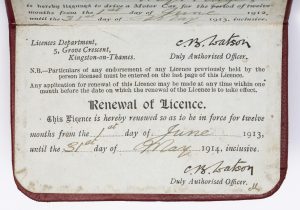 is hereby to drive a Motor Car for the period of twelve
months from the 1st day of June 1912,
until the 31st day of May 1913, inclusive.
Licences Department,
5, Grove Crescent,
Kingston-on-Thames.
C. B. Watson
Duly Authorised Officer.
N.B.—Particulars of any endorsement of any Licences previously held by the
person licensed must be entered on the last page of this Licence.
Any application for renewal of this Licence may be made at any time within one
month before the date on which the renewal of the Licence is to take effect.
Renewal of Licence.
This Licence is hereby renewed so as to be in force for twelve
months from the 1st day of June 1913,
until the 31st day of May 1914, inclusive.
C. B. Watson
Duly Authorised Officer.